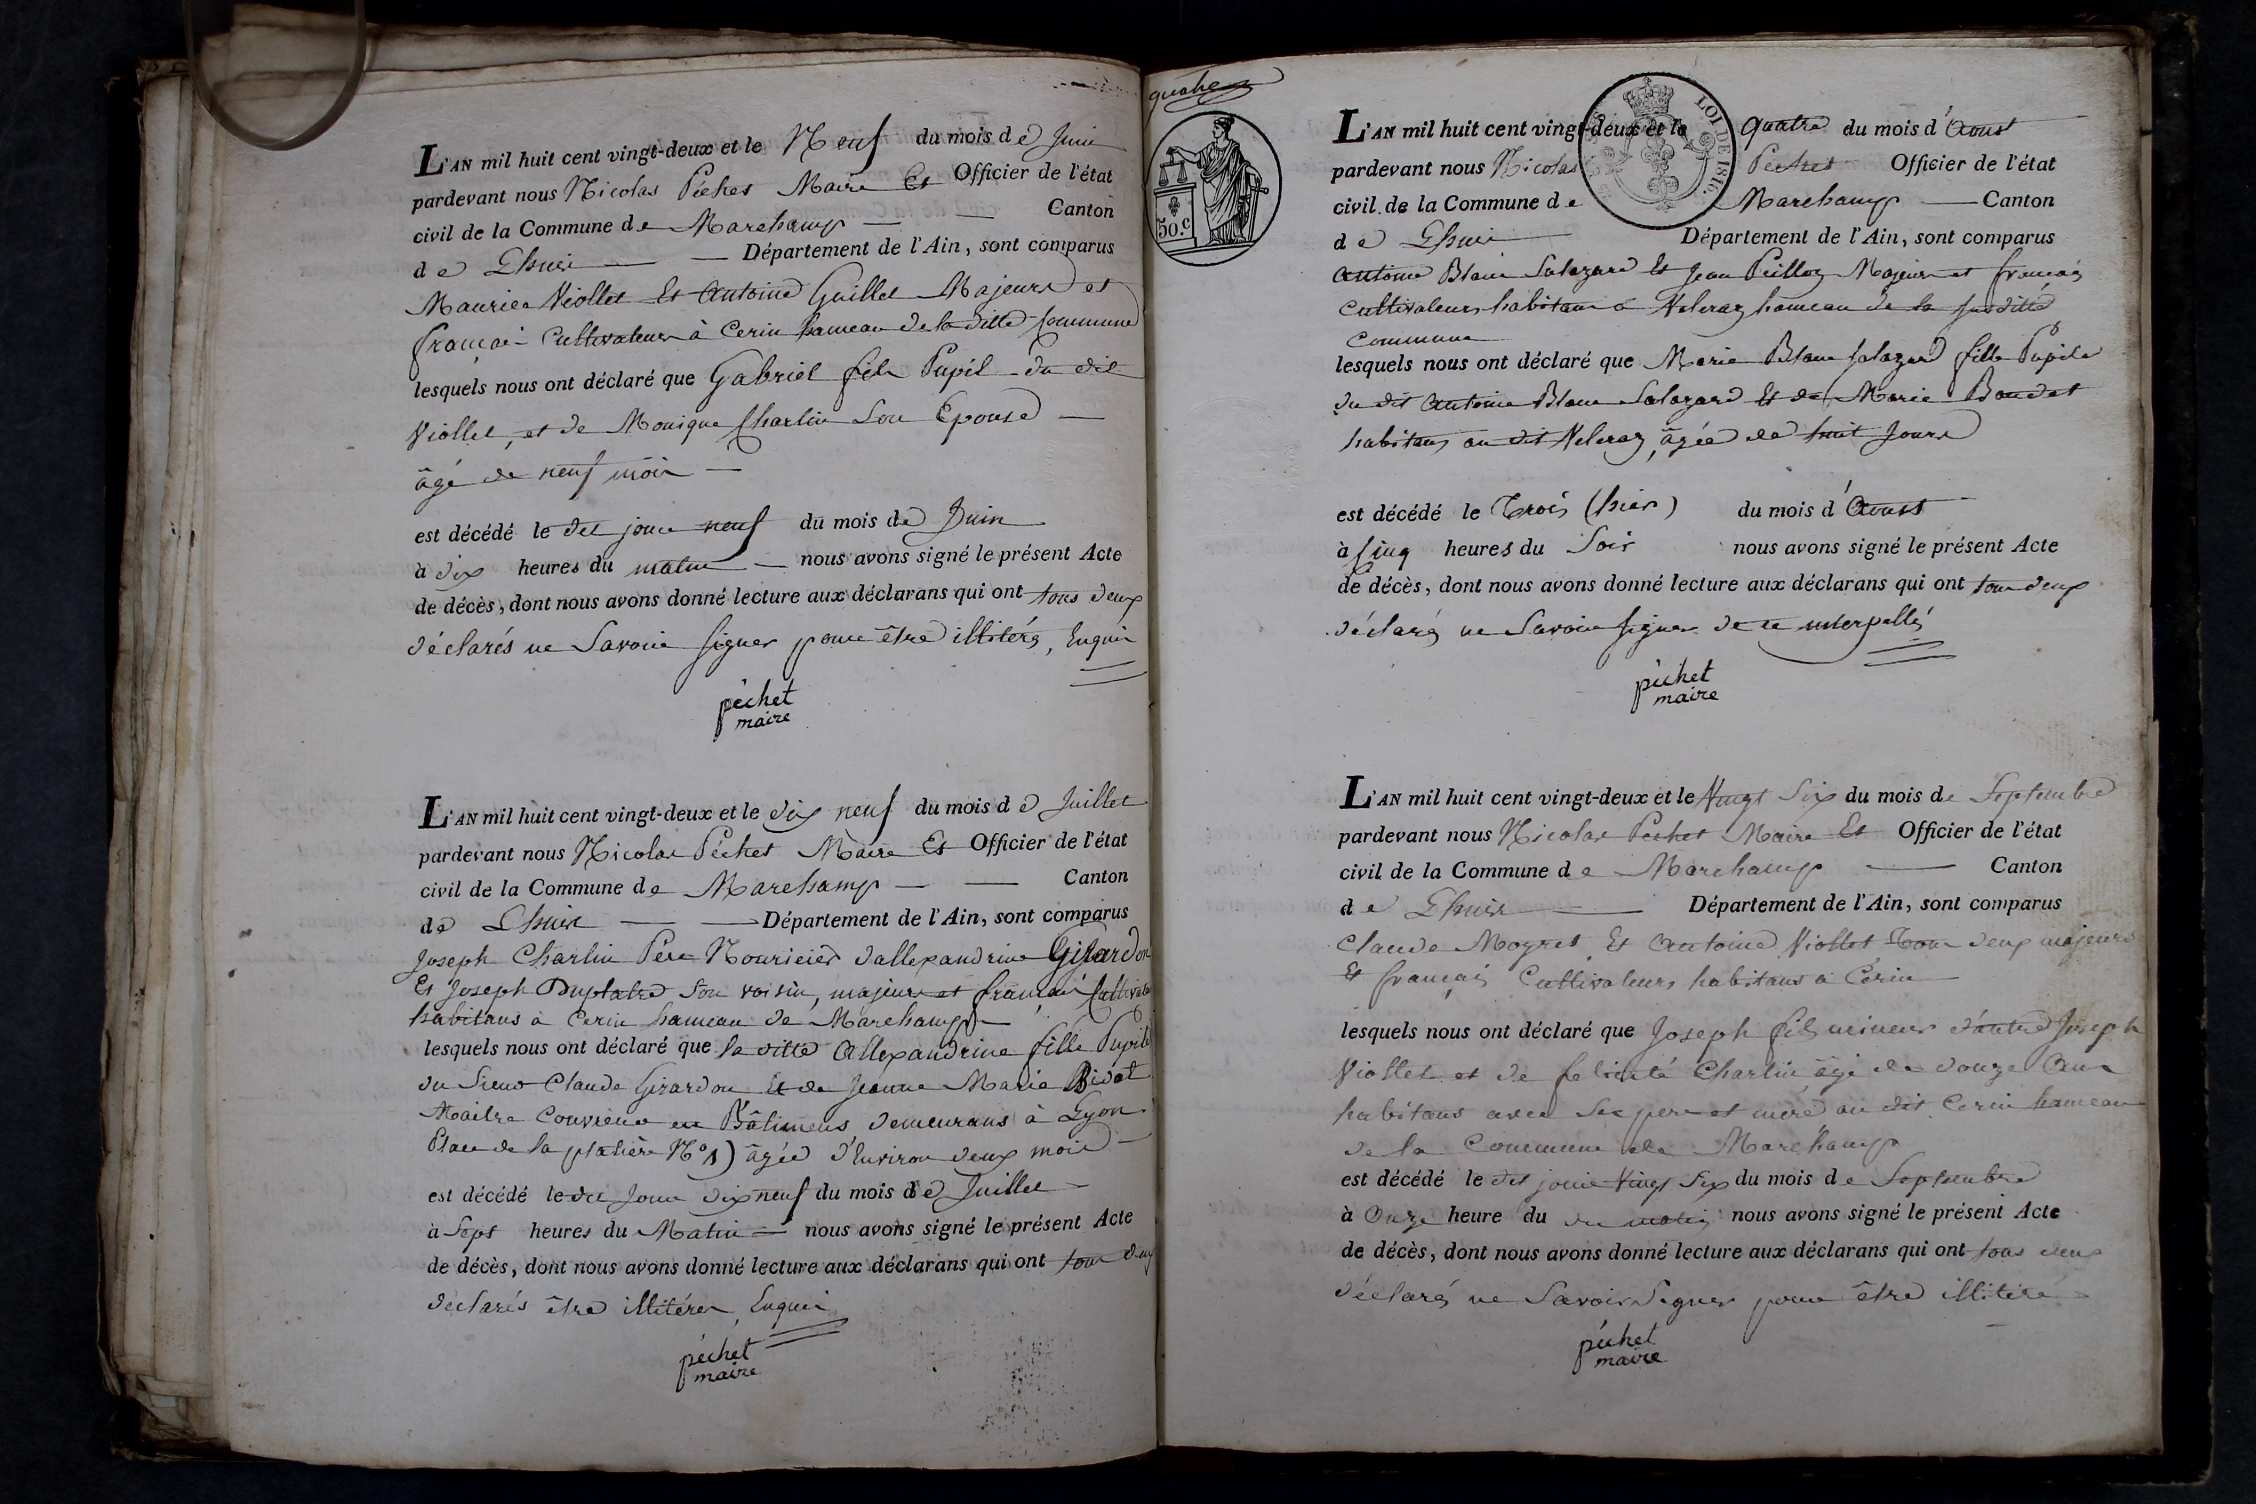 L'AN mil huit cent vingt-deux et le Neuf du mois de Juin
pardevant nous Nicolas Péchet Maire Et Officier de l'état
civil de la Commune de Marchamp Canton
de Lhuis Département de l'Ain, sont comparus
Maurice Viollet Et Antoine Guillet Majeurs et
français Cultivateurs à Cerin hameau de la ditte Commune
lesquels nous ont déclaré que Gabriel fils Pupil du dit
Viollet, et de Monique Charlin Son Epouse
âgé de neuf mois
est décédé le dit jour neuf du mois de Juin
à dix heures du matin nous avons signé le présent Acte
de décès, dont nous avons donné lecture aux déclarans qui ont tous deux
déclarés ne Savoir signer pour être illitérés, Enquis
péchet
maire
L'AN mil huit cent vingt-deux et le dix neuf du mois de Juillet
pardevant nous Nicolas Péchet Maire Et Officier de l'état
civil de la Commune de Marchamp Canton
de Lhuis Département de l'Ain, sont comparus
Joseph Charlin Pere Nouricier d'allexandrine Girardon
Et Joseph Duplatre Son voisin, majeurs et français Cultivate
habitans à Cerin hameau de Marchamp
lesquels nous ont déclaré que la ditte Allexandrine fille Pupile
du Sieur Claude Girardon Et de Jeanne Marie Bidat
Maitre Couvreur en Bâtimens demeurans à Lyon
Place de la platière N° 1) âgée d'Environ deux mois
est décédé le dit Jour dix neuf du mois de Juillet
à Sept heures du Matin nous avons signé le présent Acte
de décès, dont nous avons donné lecture aux déclarans qui ont tous deux
déclarés être illitérés, Enquis
péchet
maire
quatre
50.c
LOI DE 1816.
L'AN mil huit cent vingt-deux et le quatre du mois d'Aoust
pardevant nous Nicolas Péchet Officier de l'état
civil de la Commune de Marchamp Canton
de Lhuis Département de l'Ain, sont comparus
Antoine Blanc Salazard Et Jean Peilloz Majeurs et français
Cultivateurs habitans à Veleraz hameau de la susditte
Commune
lesquels nous ont déclaré que Marie Blanc Salazard fille Pupile
du dit Antoine Blanc Salazard Et de Marie Baudet
habitans au dit Veleraz, âgée de huit Jours
est décédé le Trois (hier) du mois d'Aoust
à Cinq heures du Soir nous avons signé le présent Acte
de décès, dont nous avons donné lecture aux déclarans qui ont tous deux
déclarés ne Savoir signer de ce interpellés
péchet
maire
L'AN mil huit cent vingt-deux et le Vingt Six du mois de Septembre
pardevant nous Nicolas Pechet Maire Et Officier de l'état
civil de la Commune de Marchamp Canton
de Lhuis Département de l'Ain, sont comparus
Claude Moyret Et Antoine Viollet Tous deux majeurs
Et français Cultivateurs habitans à Cérin
lesquels nous ont déclaré que Joseph fils mineur d'autre Joseph
Viollet et de felicité Charlin âgé de douze Ans
habitans avec Ses pere et mère au dit Cerin hameau
de la Commune de Marchamp
est décédé le dit jour Vingt Six du mois de Septembre
à Onze heure du du matin nous avons signé le présent Acte
de décès, dont nous avons donné lecture aux déclarans qui ont tous deux
déclarés ne Savoir Signer pour être illitéré
péchet
maire